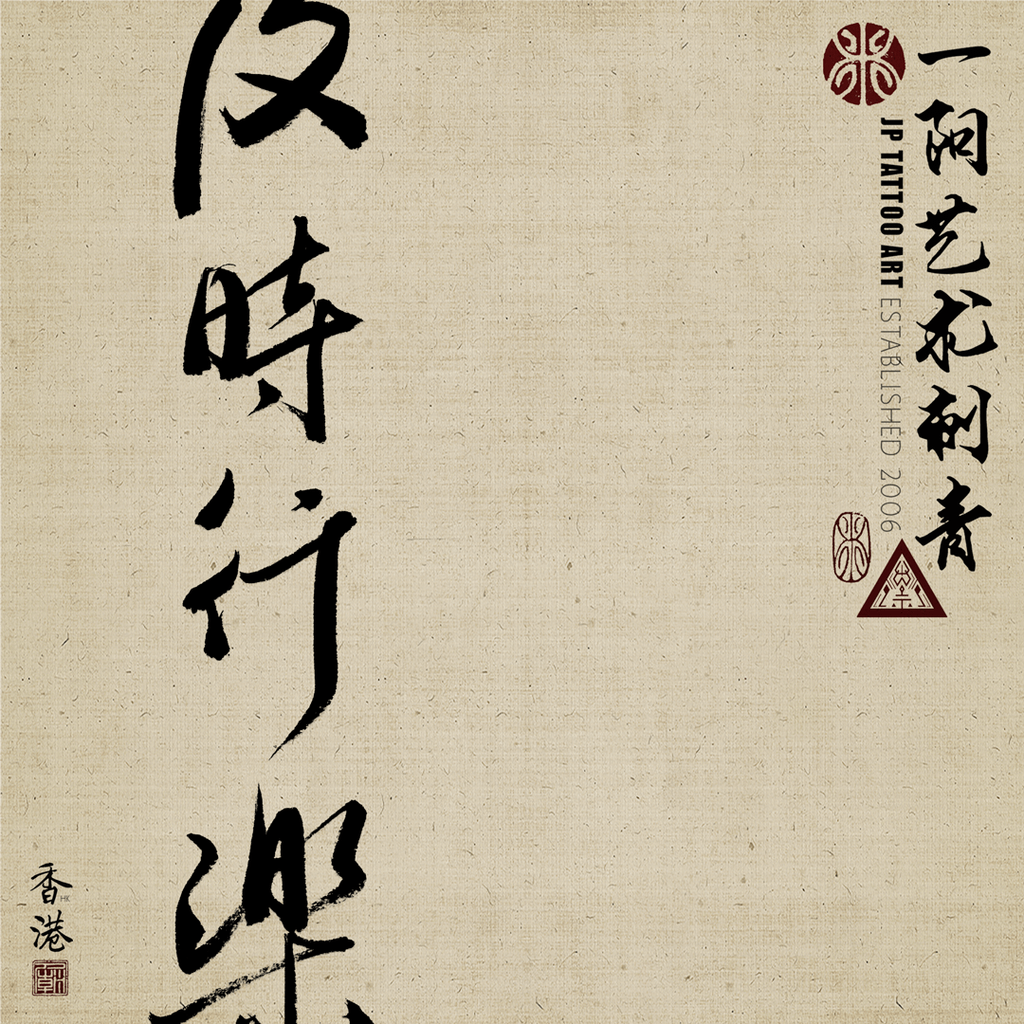 一阳艺术刺青
JP TATTOO ART ESTABLISHED 2006
及時行樂
香港
HK